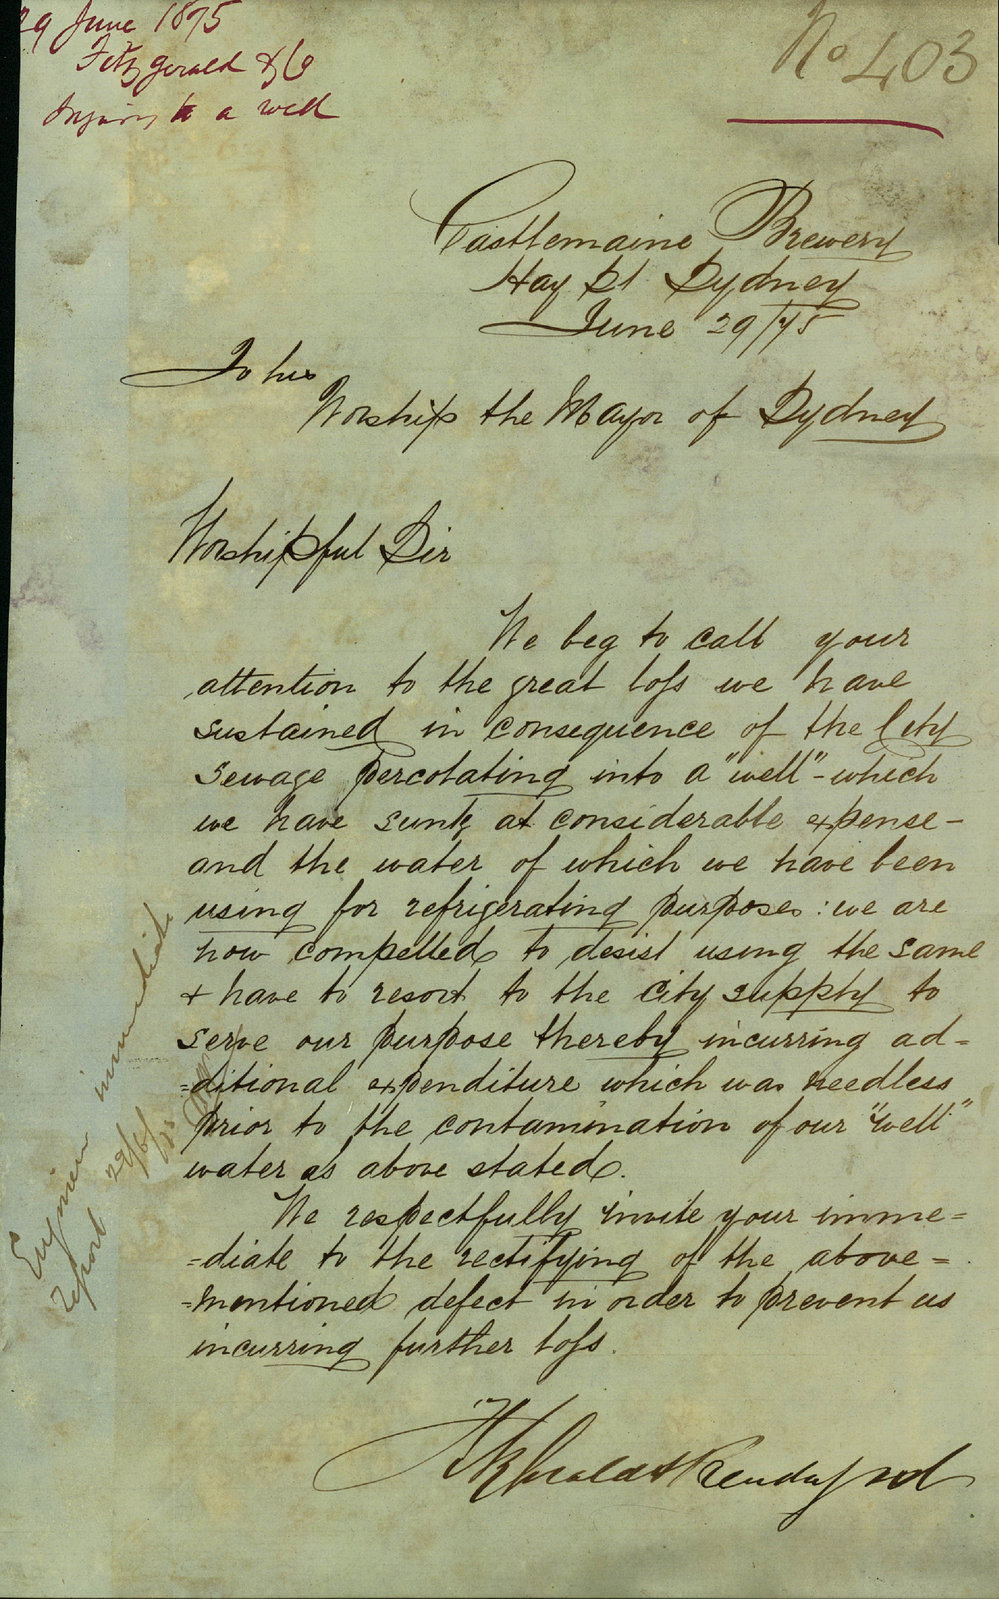 29 June 1875
Fitzgerald & Co
Injury to a well
No 403
Castlemaine Brewery
Hay St Sydney
June 29/75
To his
Worship the Mayor of Sydney
Worshipful Sir
We beg to call your
attention to the great loss we have
sustained in consequence of the City
Sewage percolating into a "well" - which
we have sunk at considerable expense -
and the water of which we have been
using for refrigerating purposes : we are
now compelled to desist using the same
& have to resort to the city supply to
serve our purpose thereby incurring ad=
=ditional expenditure which was needless
prior to the contamination of our "well"
water as above stated.
We respectfully invite your imme=
=diate to the rectifying of the above=
=mentioned defect in order to prevent us
incurring further loss.
Fitzgerald &
Engineer immediate
report 29/6/